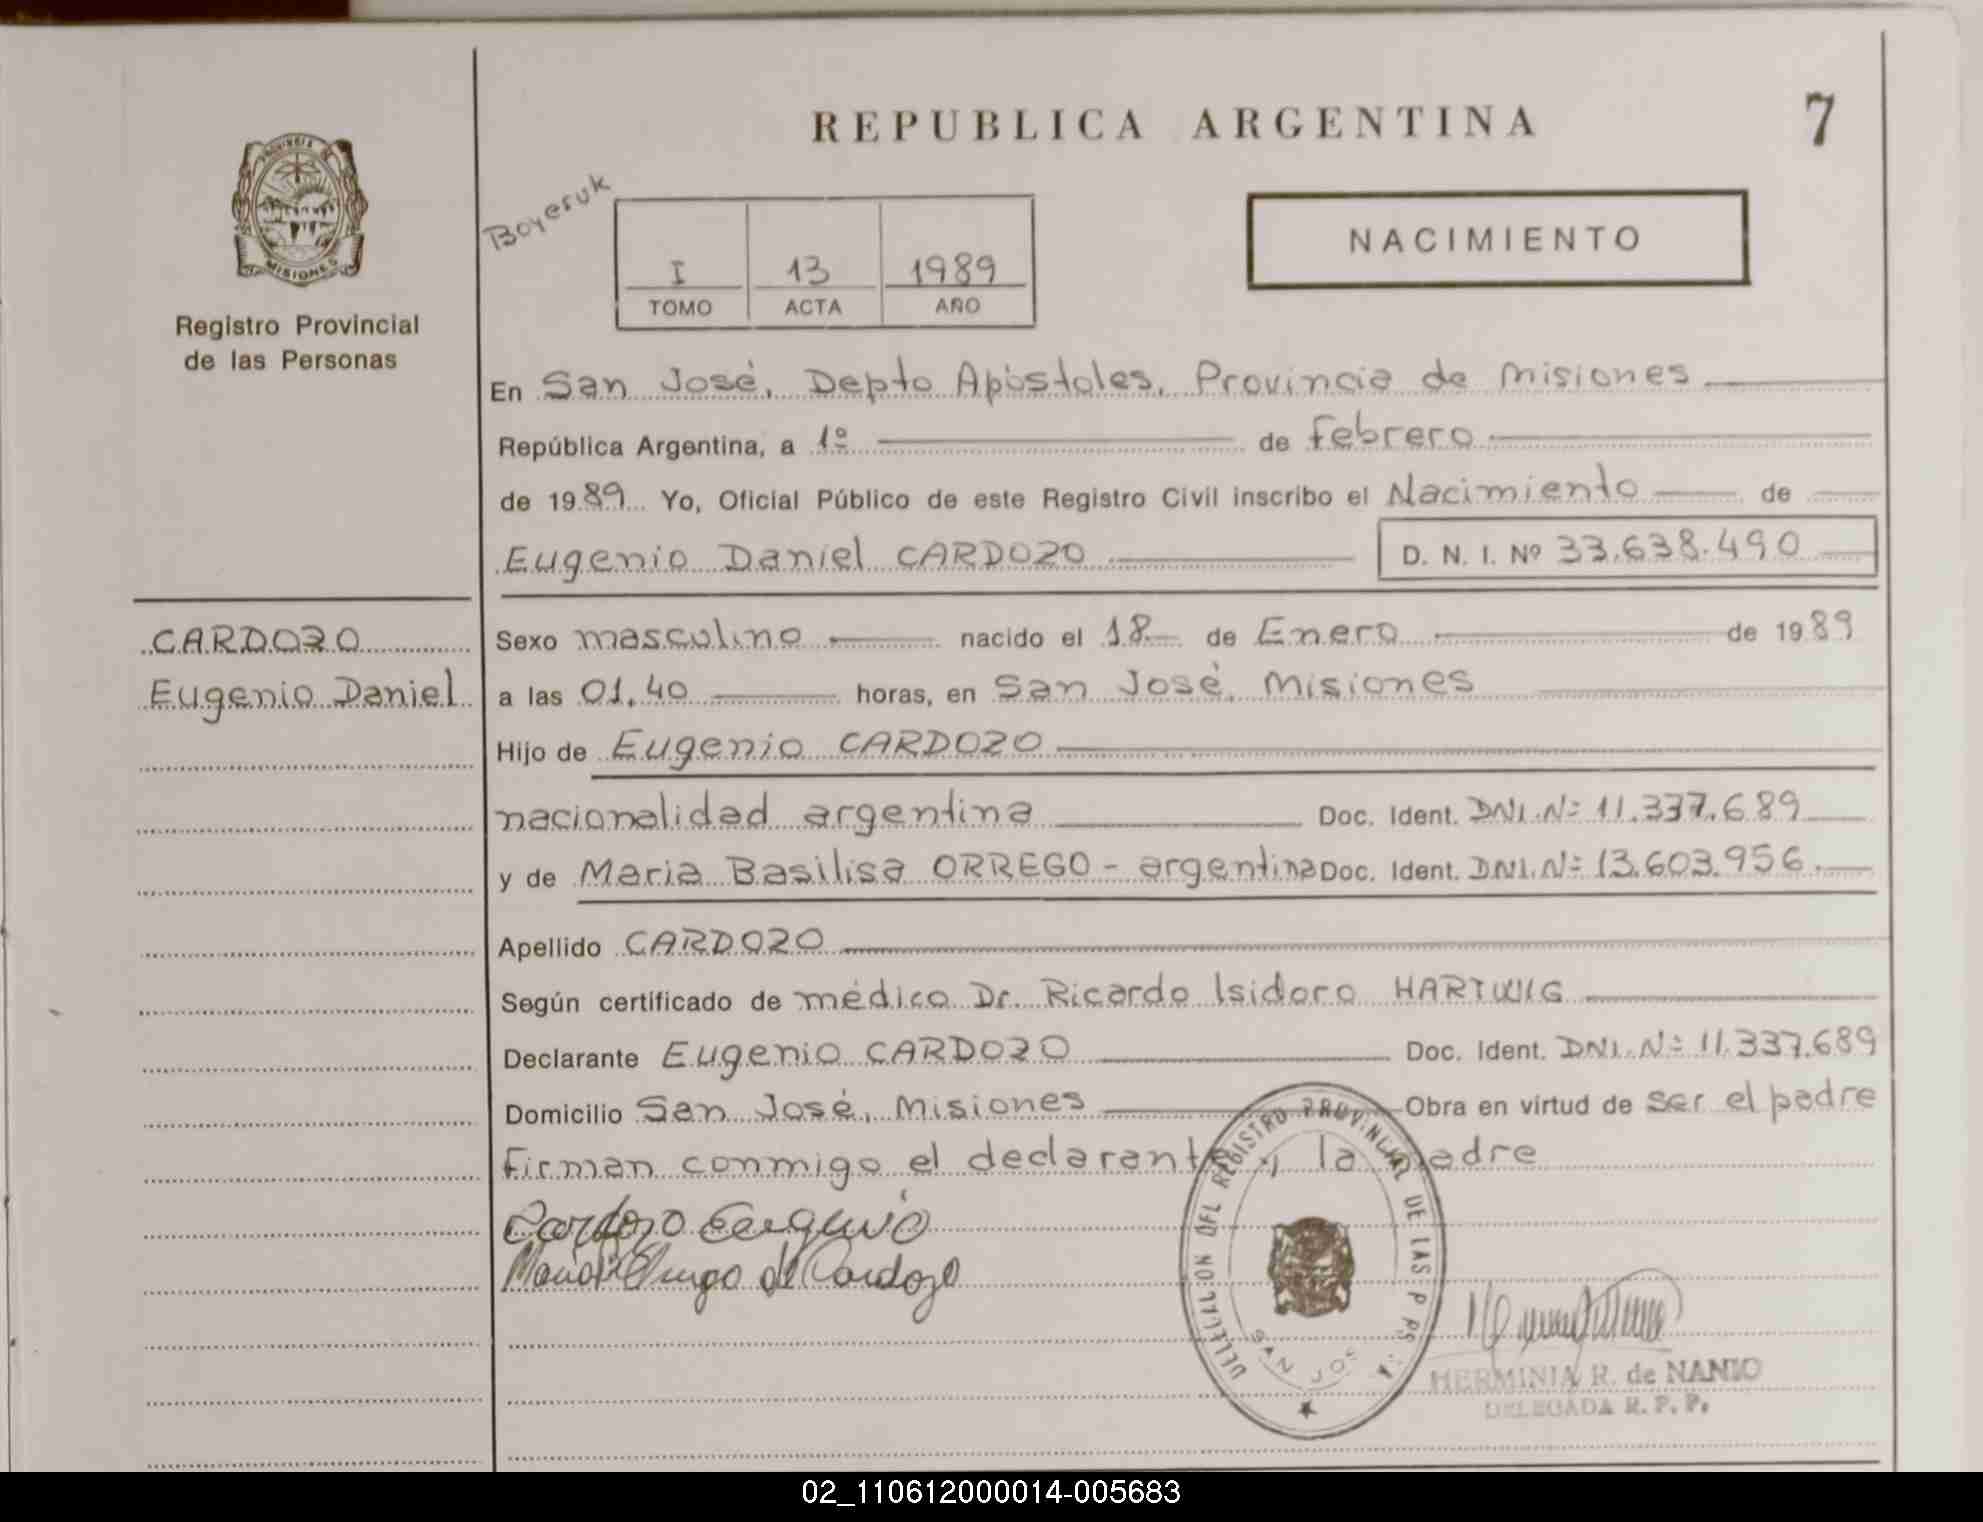 REPUBLICA ARGENTINA
7
PROVINCIA DE
MISIONES
Registro Provincial
de las Personas
Boyeruk
I 13 1989
TOMO ACTA AÑO
NACIMIENTO
En San José, Depto Apóstoles, Provincia de Misiones
República Argentina, a 1º de febrero
de 1989 Yo, Oficial Público de este Registro Civil inscribo el Nacimiento de
Eugenio Daniel CARDOZO D. N. I. Nº 33.638.490
CARDOZO
Eugenio Daniel
Sexo masculino nacido el 18 de Enero de 1989
a las 01,40 horas, en San José, Misiones
Hijo de Eugenio CARDOZO
nacionalidad argentina Doc. Ident. DNI.Nº 11.337.689
y de Maria Basilisa ORREGO - argentina Doc. Ident. DNI.Nº 13.603.956.
Apellido CARDOZO
Según certificado de médico Dr. Ricardo Isidoro HARTWIG
Declarante Eugenio CARDOZO Doc. Ident. DNI.Nº 11.337.689
Domicilio San José, Misiones Obra en virtud de ser el padre
Firman conmigo el declarante y la madre
Cardozo Eugenio
Maria Orrego de Cardozo
DELEGACION DEL REGISTRO PROVINCIAL DE LAS PERSONAS
SAN JOSE
HERMINIA R. de NANIO
DELEGADA R. P. P.
02_110612000014-005683